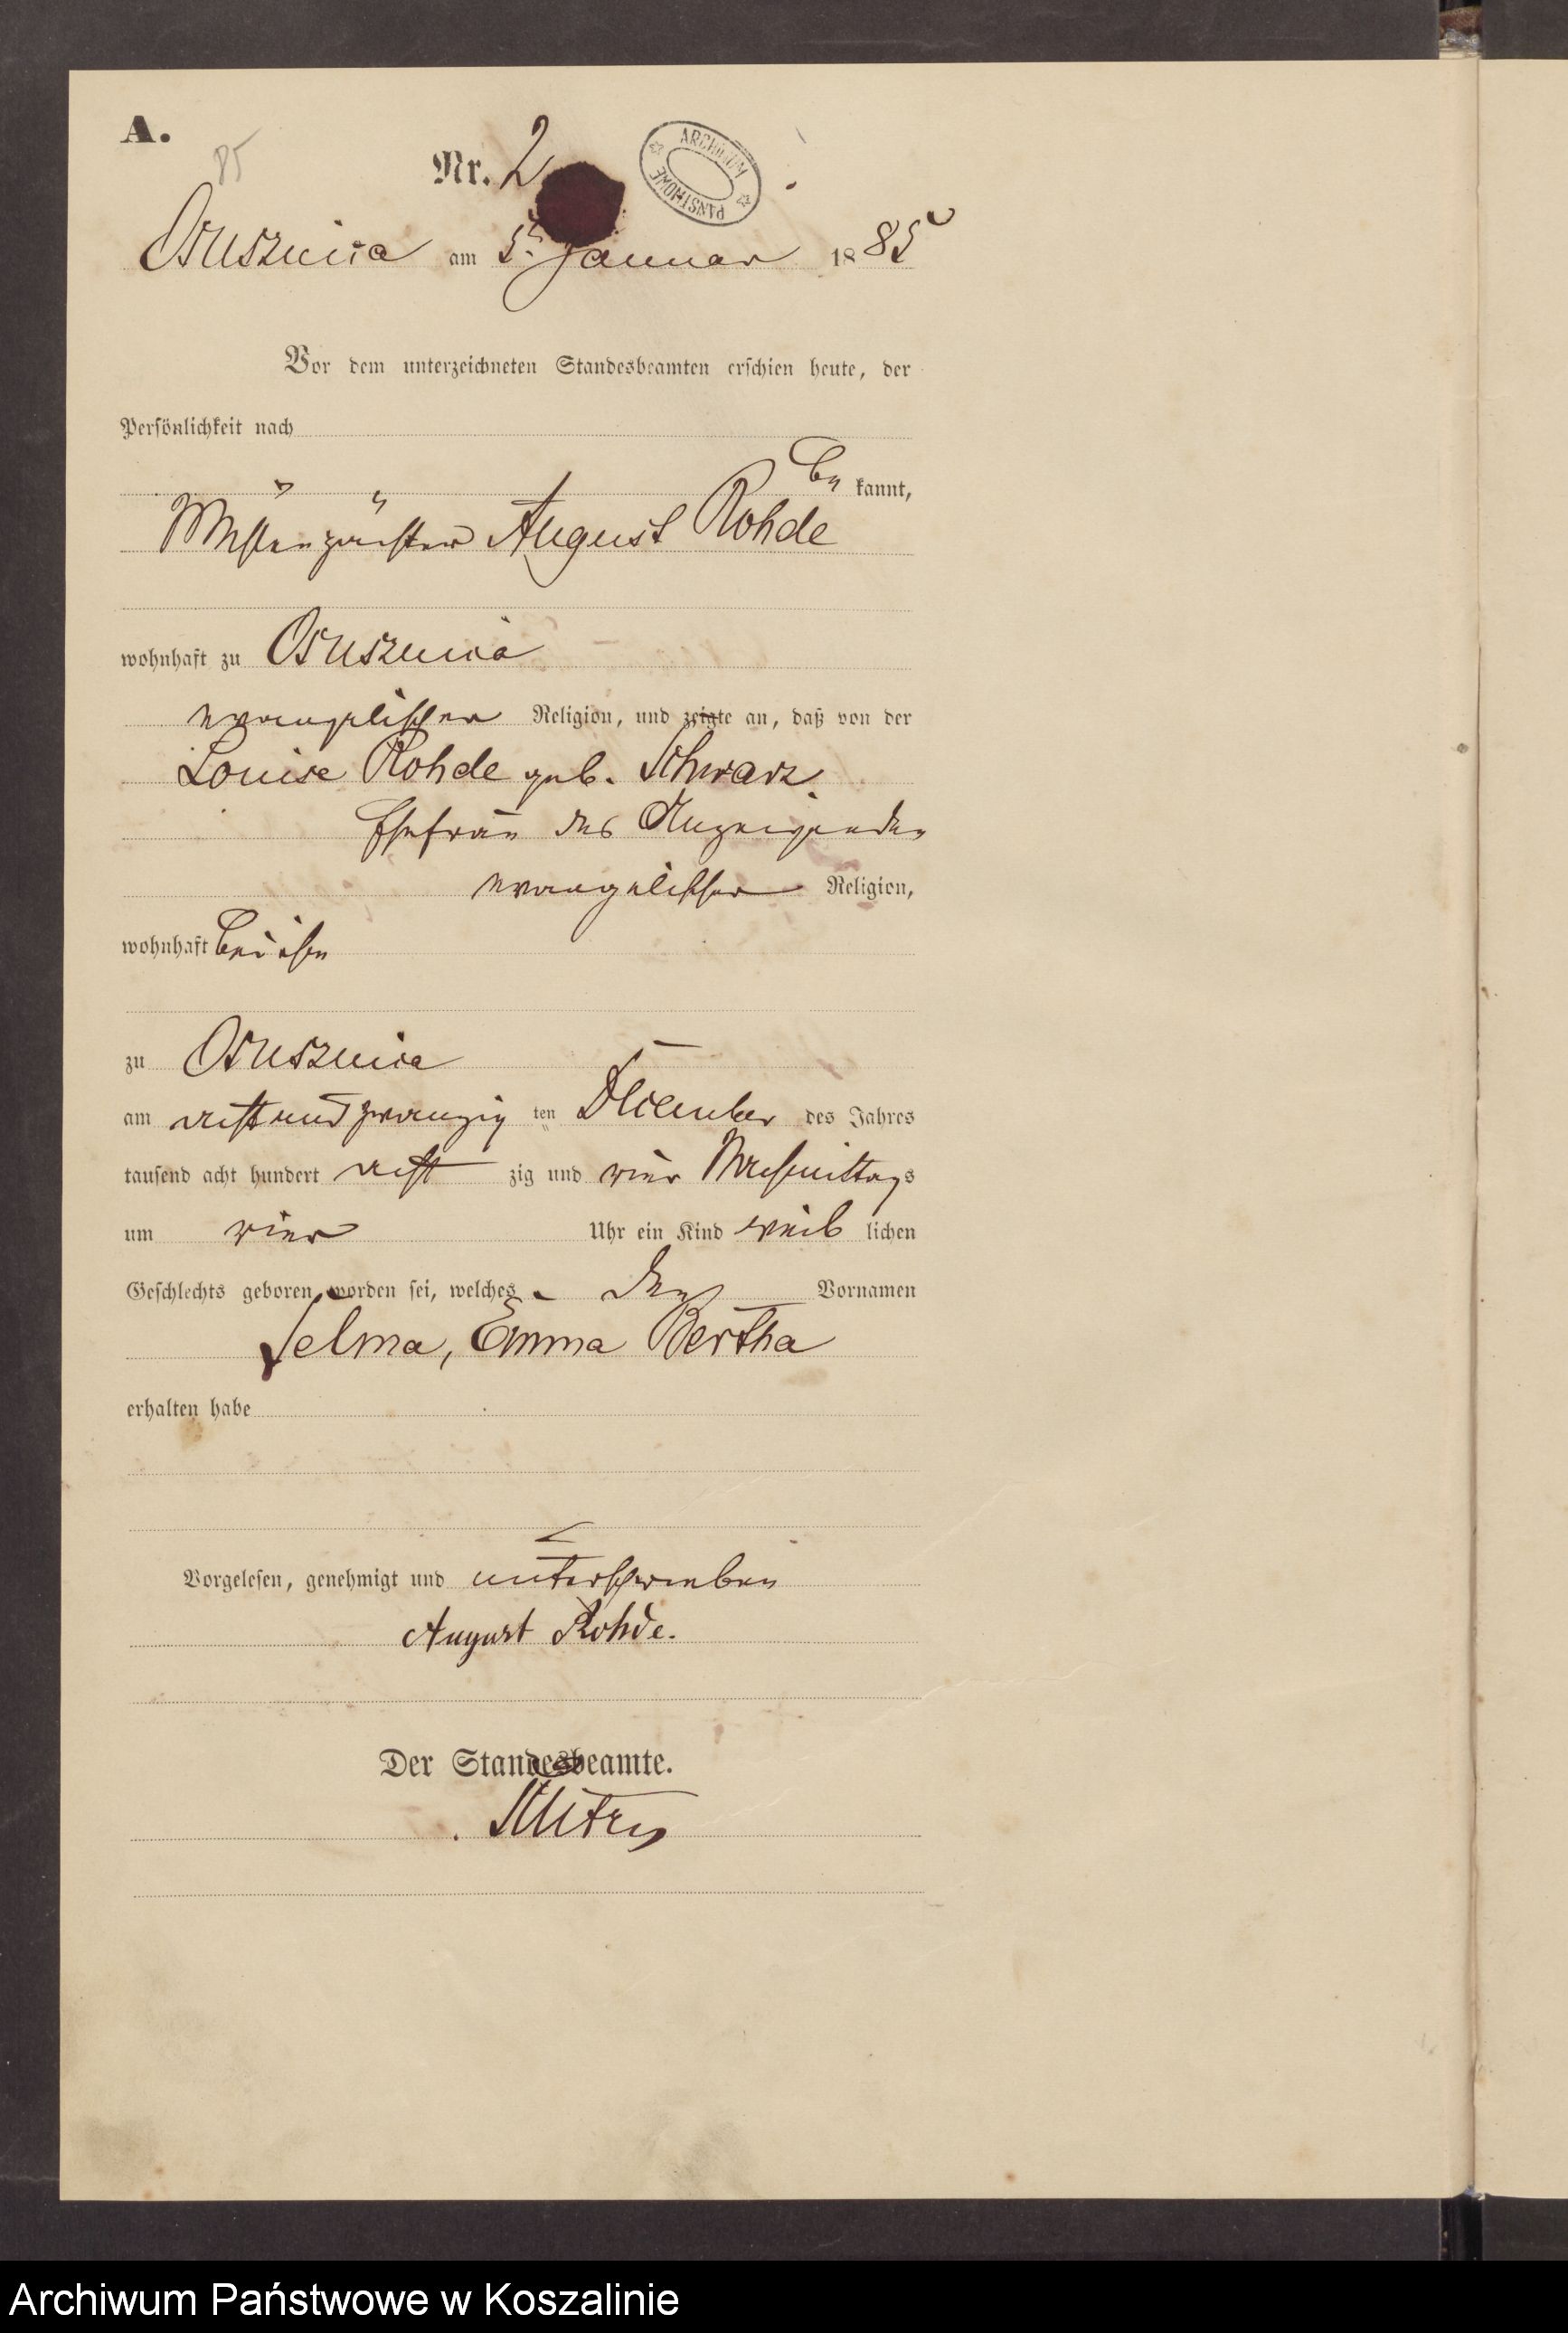 A.
85
Nr. 2
ARCHIWUM PAŃSTWOWE
Osusznica am 5ten Januar 1885
Vor dem unterzeichneten Standesbeamten erschien heute, der
Persönlichkeit nach
be kannt,
Mühlenpächter August Rohde
wohnhaft zu Osusznica
evangelischer Religion, und zeigte an, daß von der
Louise Rohde geb. Schwarz.
Ehefrau des Anzeigenden
evangelischer Religion,
wohnhaft bei ihm
zu Osusznica
am achtundzwanzig ten December des Jahres
tausend acht hundert acht zig und vier Nachmittags
um vier Uhr ein Kind weib lichen
Geschlechts geboren worden sei, welches den Vornamen
Selma, Emma Bertha
erhalten habe
Vorgelesen, genehmigt und unterschrieben
August Rohde.
Der Standesbeamte.
Archiwum Państwowe w Koszalinie